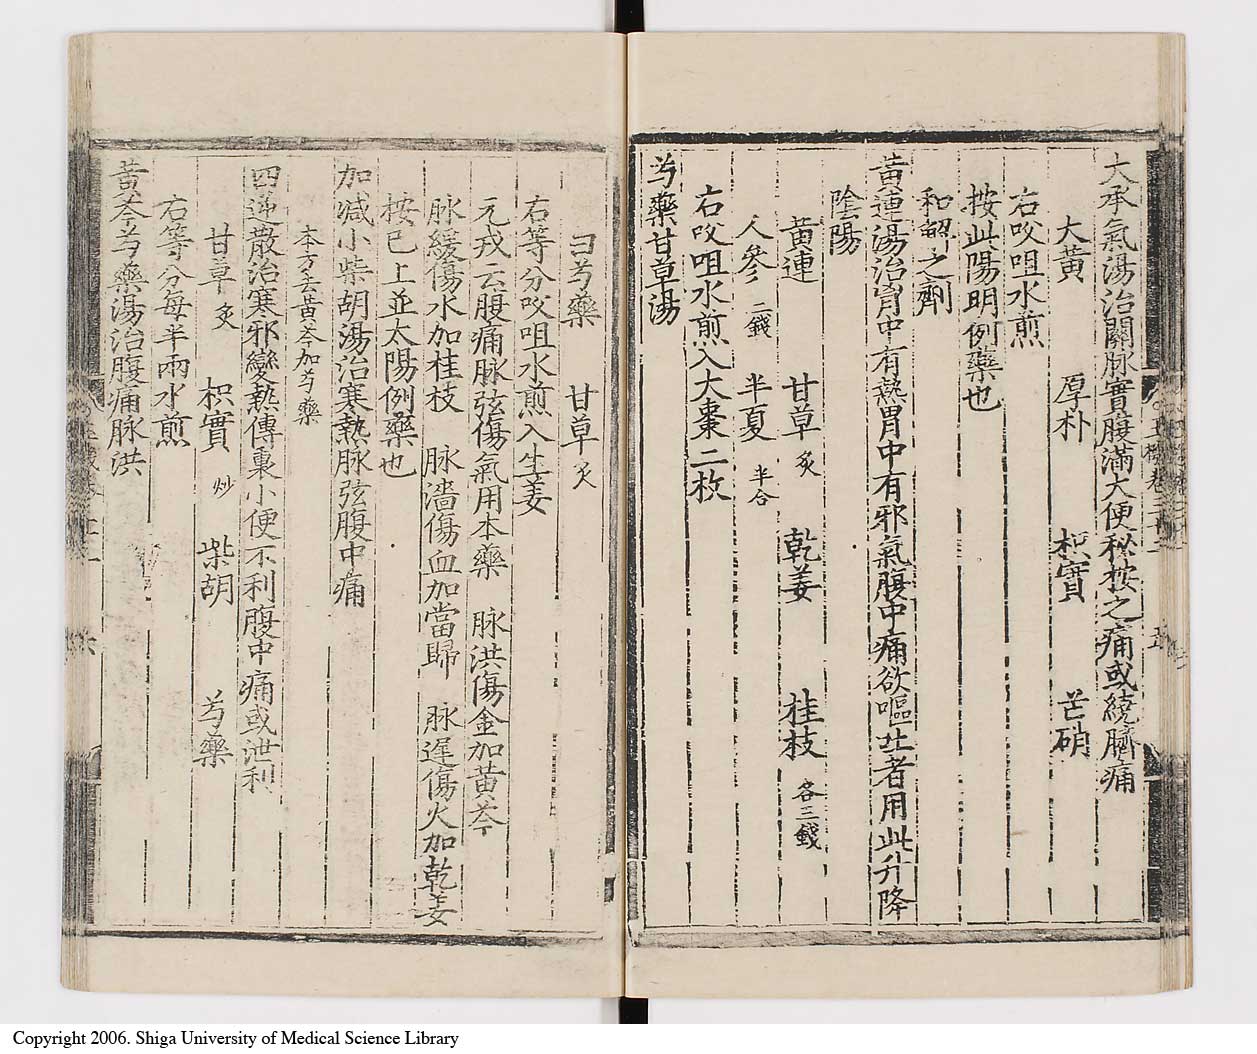 大承氣湯治關脉實腹滿大便秘按之痛或繞臍痛
大黃 厚朴 枳實 芒硝
右㕮咀水煎
按此陽明例藥也
和解之劑
黃連湯治胷中有熱胃中有邪氣腹中痛欲嘔吐者用此升降
陰陽
黃連 甘草 炙 乾姜 桂枝 各三錢
人參 二錢 半夏 半合
右㕮咀水煎入大棗二枚
芍藥甘草湯
白芍藥 甘草 炙
右等分㕮咀水煎入生姜
元戎云腹痛脉弦傷氣用本藥 脉洪傷金加黃芩
脉緩傷水加桂枝 脉濇傷血加當歸 脉遲傷火加乾姜
按已上並太陽例藥也
加减小柴胡湯治寒熱脉弦腹中痛
本方去黃芩加芍藥
四逆散治寒邪變熱傳裏小便不利腹中痛或泄利
甘草 炙 枳實 炒 柴胡 芍藥
右等分每半兩水煎
黃芩芍藥湯治腹痛脉洪
六
Copyright 2006. Shiga University of Medical Science Library